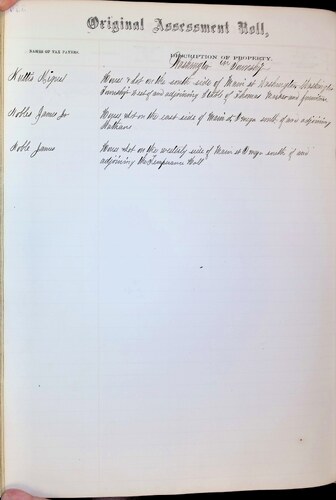 Original Assessment Roll,
NAMES OF TAX PAYERS.
DESCRIPTION OF PROPERTY.
Washington Township
House & Lot on the south side of Main st Washington Washington
Township West of and adjoining of Thomas
Nobles James Jr House & Lot on the east side of Main st south of and adjoining
Noble James House & Lot on the westerly side of Main st south of and
adjoining the Temperance Hall